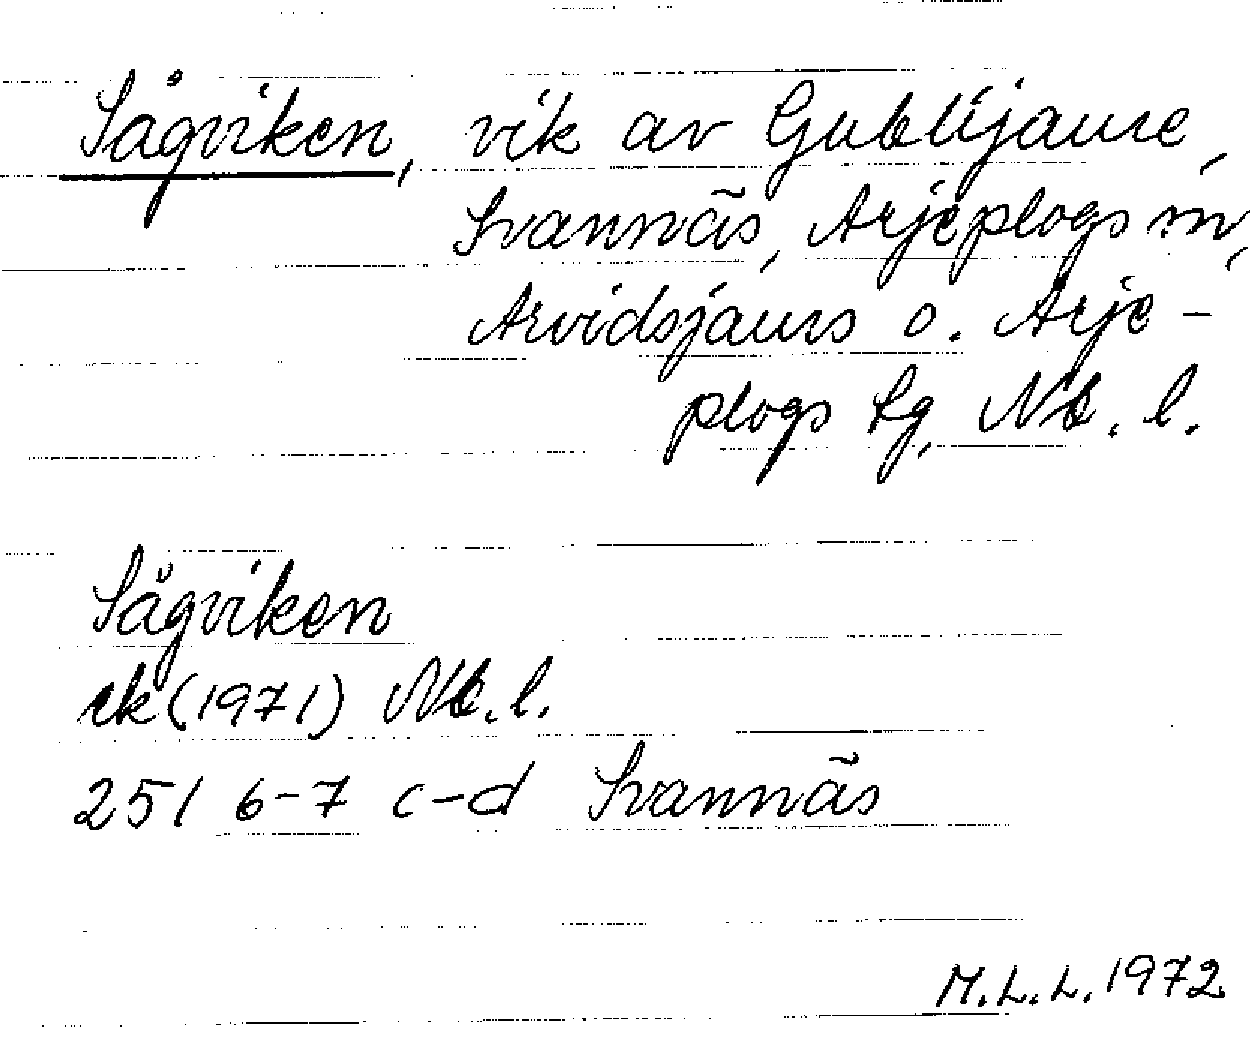 Sågviken, vik av Gublijaure,
Svannäs, Arjeplogs sn,
Arvidsjaurs o. Arje-
plogs tg, Nb. l.
Sågviken
ek (1971) Nb. l.
25I 6-7 c-d Svannäs
M.L.L. 1972